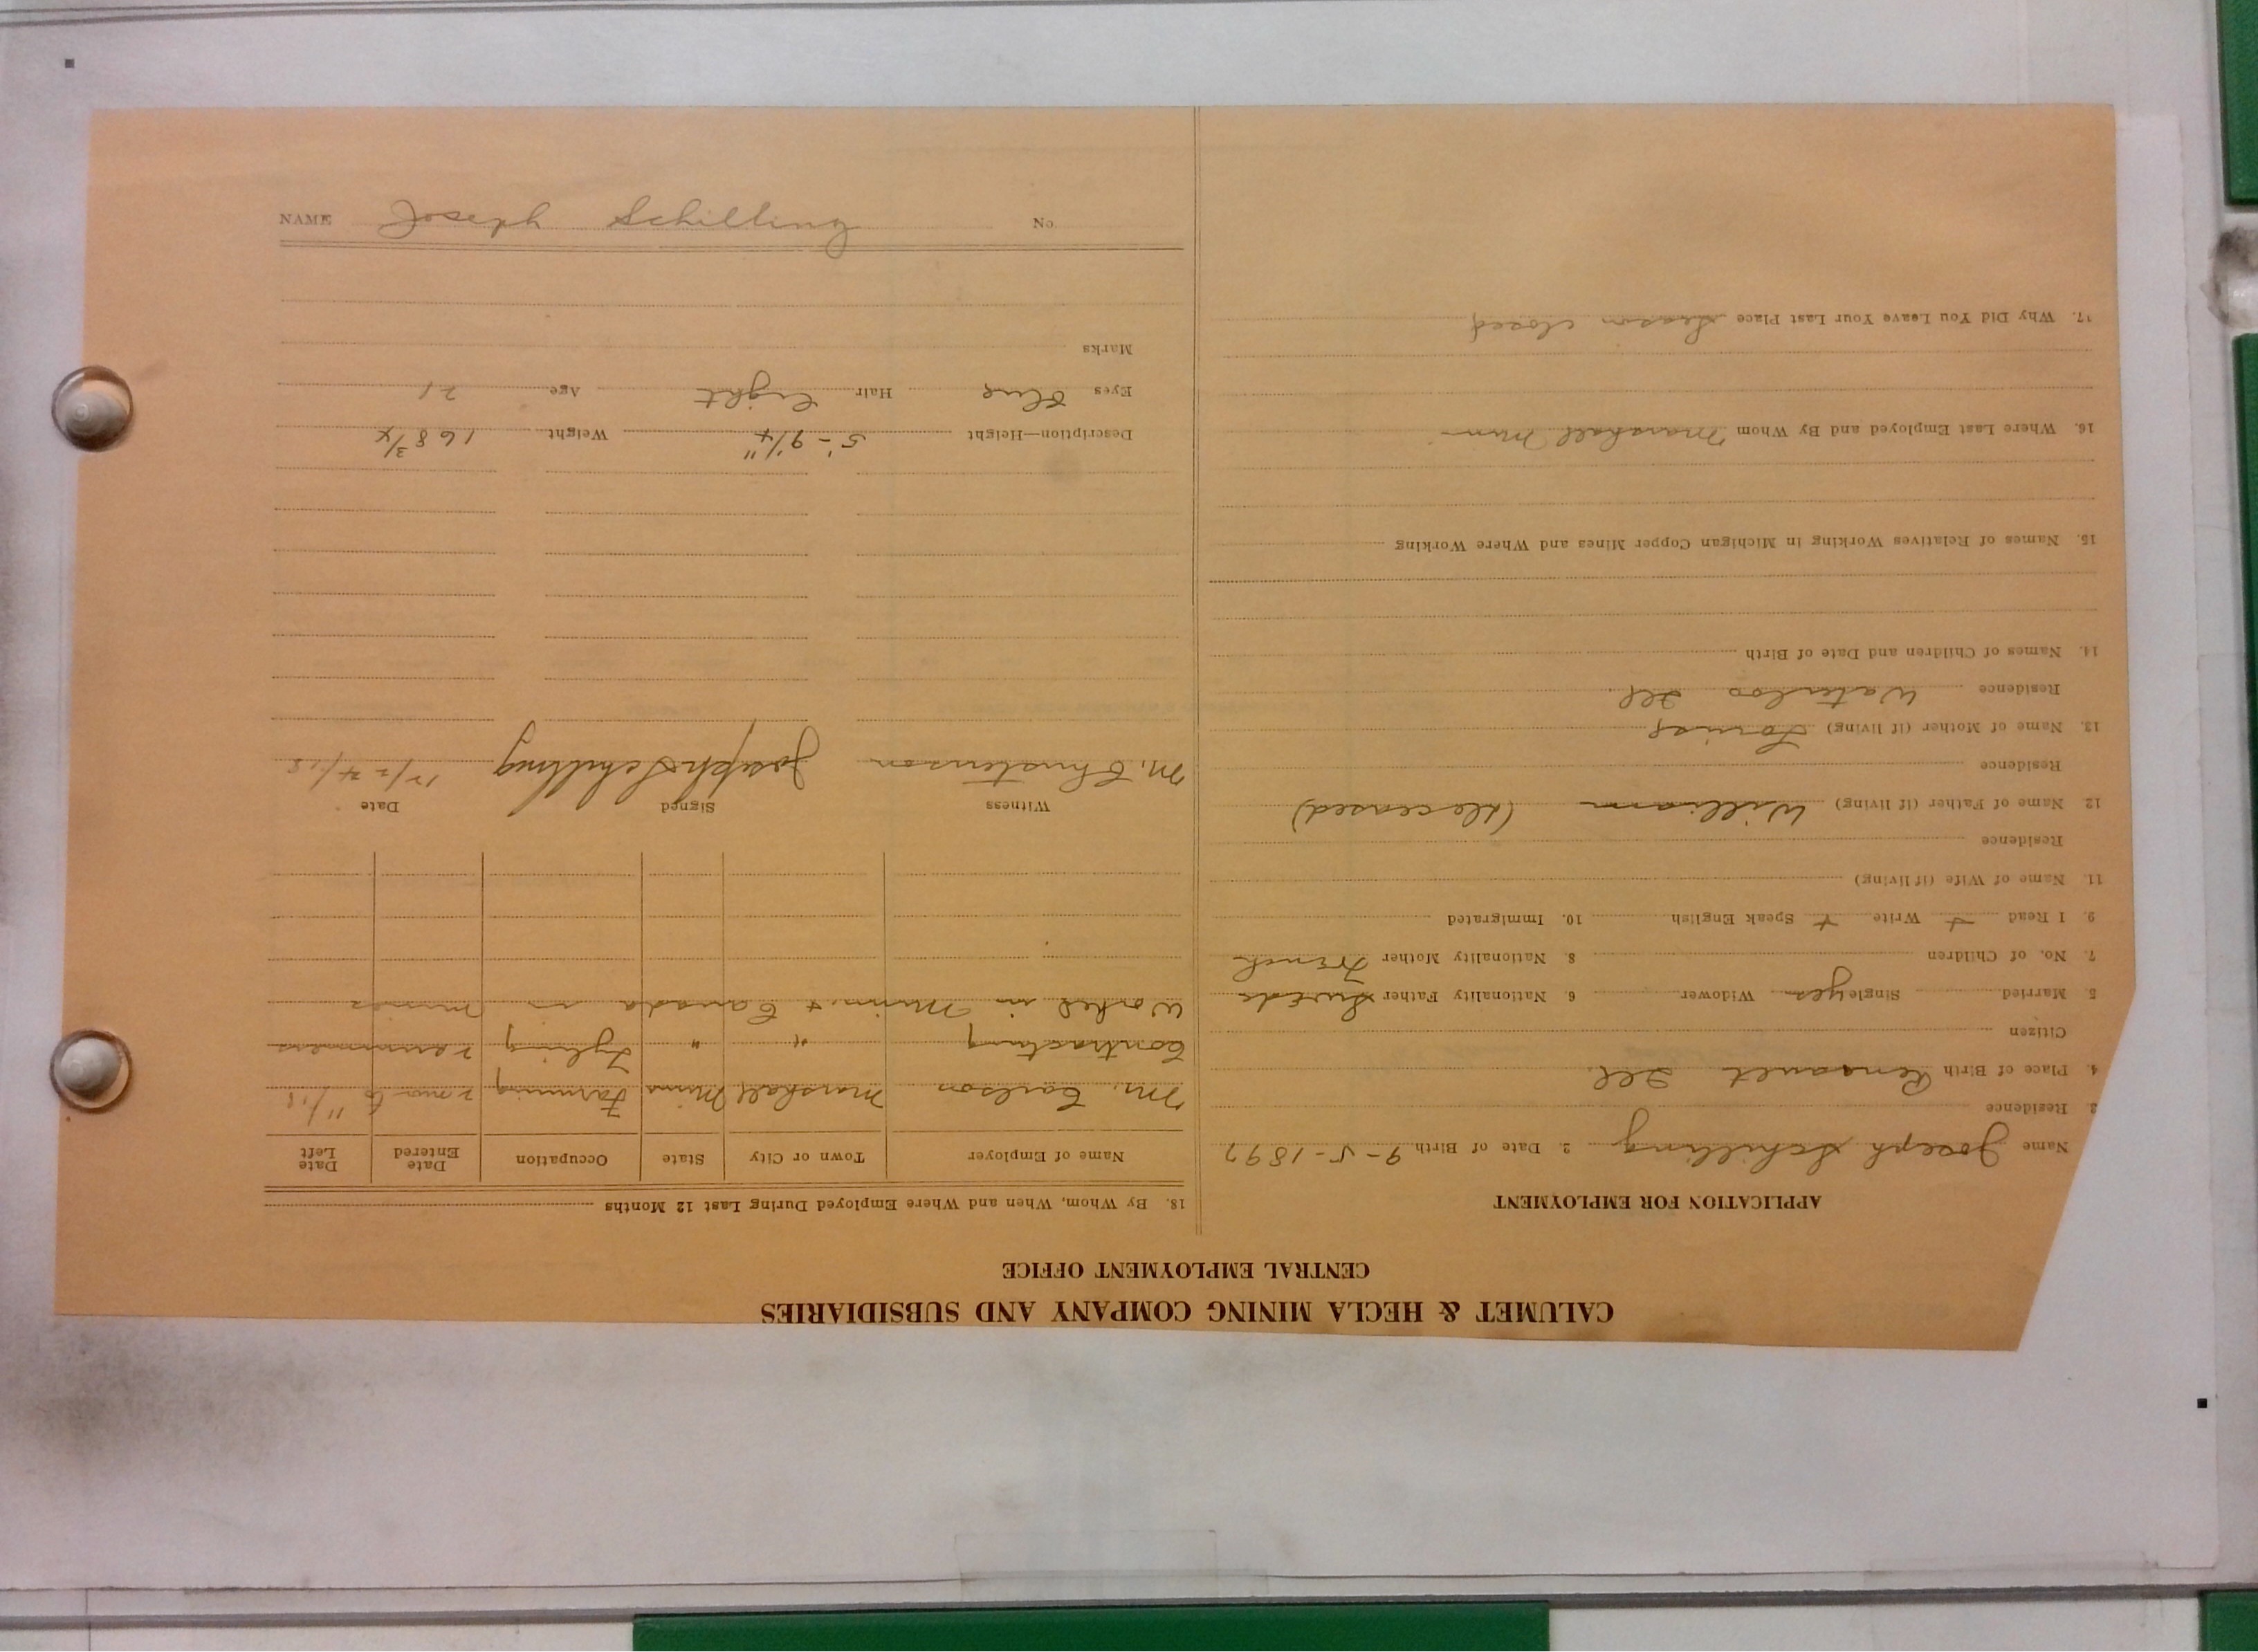 CALUMET & HECLA MINING COMPANY AND SUBSIDIARIES
CENTRAL EMPLOYMENT OFFICE
APPLICATION FOR EMPLOYMENT
Name Joseph Schilling 2. Date of Birth 9-5-1897
3 Residence
4. Place of Birth Renault Ill.
Citizen
5 Married Single yes Widower 6. Nationality Father Swede
7. No. of Children 8. Nationality Mother French
9. I Read + Write + Speak English 10. Immigrated
11. Name of Wife (if living)
Residence
12 Name of Father (if living) William (deceased)
Residence
13. Name of Mother (if living)
Residence Waterloo Ill.
14. Names of Children and Date of Birth
15. Names of Relatives Working in Michigan Copper Mines and Where Working
16. Where Last Employed and By Whom Marshall Minn
17. Why Did You Leave Your Last Place Season closed
18. By Whom, When and Where Employed During Last 12 Months
Name of Employer Town or City State Occupation Date Entered Date Left
M. Carlson Marshall Minn Farming 2 mo 6 11/18
Contracting " " 2 summers
Worked in Minn. + Canada in mines
Witness Signed Date
M. Christenson Joseph Schilling 12/24/18
Description—Height 5'-9 1/4" Weight 168 3/4
Eyes Blue Hair Light Age 21
Marks
NAME Joseph Schilling CN